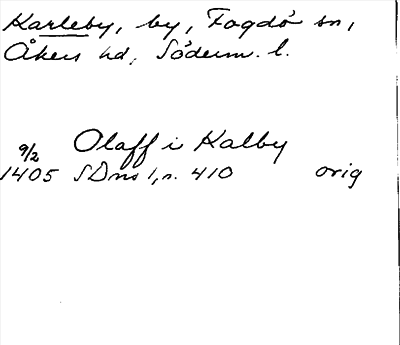 Karleby, by, Fogdö sn,
Åkers hd, Söderm. l.
Olaff i Kalby
9/2
1405 SDns 1, s. 410 orig